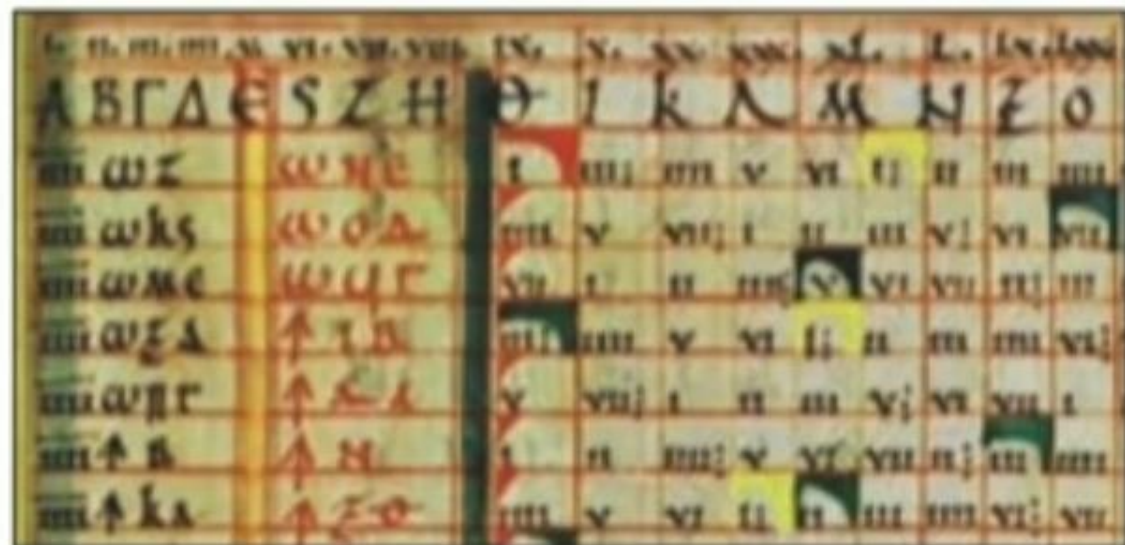 i. ii. iii. iiii. v. vi. vii. viii. ix. x. xx. xxx. xl. l. lx. lxx.
Α Β Γ Δ Є Ϛ Ζ Η Θ Ι Κ Λ Μ Ν Ξ Ο
iiii ω ζ ω ν ε i iii; iiii v vi i; ii iii iiii
iiii ω κ ϛ ω ο δ iiii v vii; i ii iii v; vi vii
iiii ω μ ε ω ϟ γ vii i ii iiii; v vi vii ii; iii
iiii ω ξ δ ↑ ι β iii; iiii v vi i; ii iii iiii vi;
iiii ω π γ ↑ λ α v vii; i ii iii v; vi vii i
iiii ↑ β ↑ ν i ii iiii; v vi vii ii; iii iiii
iiii ↑ κ α ↑ ξ θ iiii v vi i; ii iii iiii vi; vii